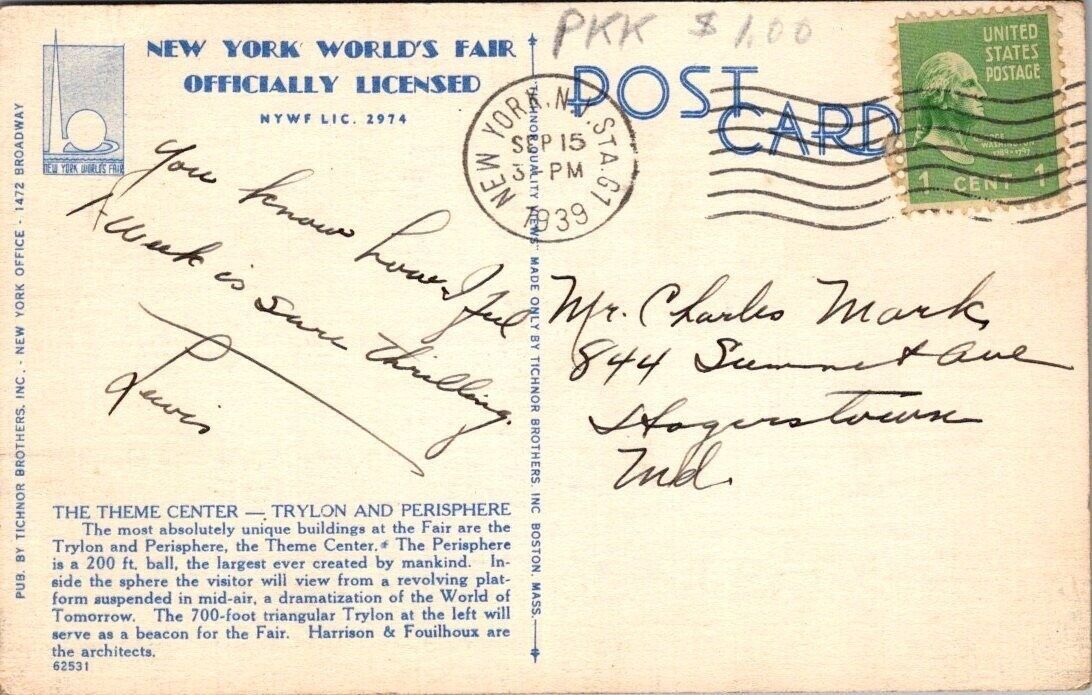 PKK $1.00
NEW YORK WORLD'S FAIR
OFFICIALLY LICENSED
NYWF LIC. 2974
NEW YORK WORLD'S FAIR
POST CARD
NEW YORK, N.Y. STA. 61
SEP 15
3 PM
1939
UNITED
STATES
POSTAGE
GEORGE
WASHINGTON
1789-1797
1 CENT 1
You know how I feel
A Week is Sure thrilling.
Lewis
Mr. Charles Mark
844 Summit Ave
Hagerstown
Md.
THE THEME CENTER — TRYLON AND PERISPHERE
The most absolutely unique buildings at the Fair are the
Trylon and Perisphere, the Theme Center. The Perisphere
is a 200 ft. ball, the largest ever created by mankind. In-
side the sphere the visitor will view from a revolving plat-
form suspended in mid-air, a dramatization of the World of
Tomorrow. The 700-foot triangular Trylon at the left will
serve as a beacon for the Fair. Harrison & Fouilhoux are
the architects.
62531
PUB. BY TICHNOR BROTHERS, INC. - NEW YORK OFFICE - 1472 BROADWAY
"TICHNOR QUALITY VIEWS" MADE ONLY BY TICHNOR BROTHERS, INC BOSTON, MASS.